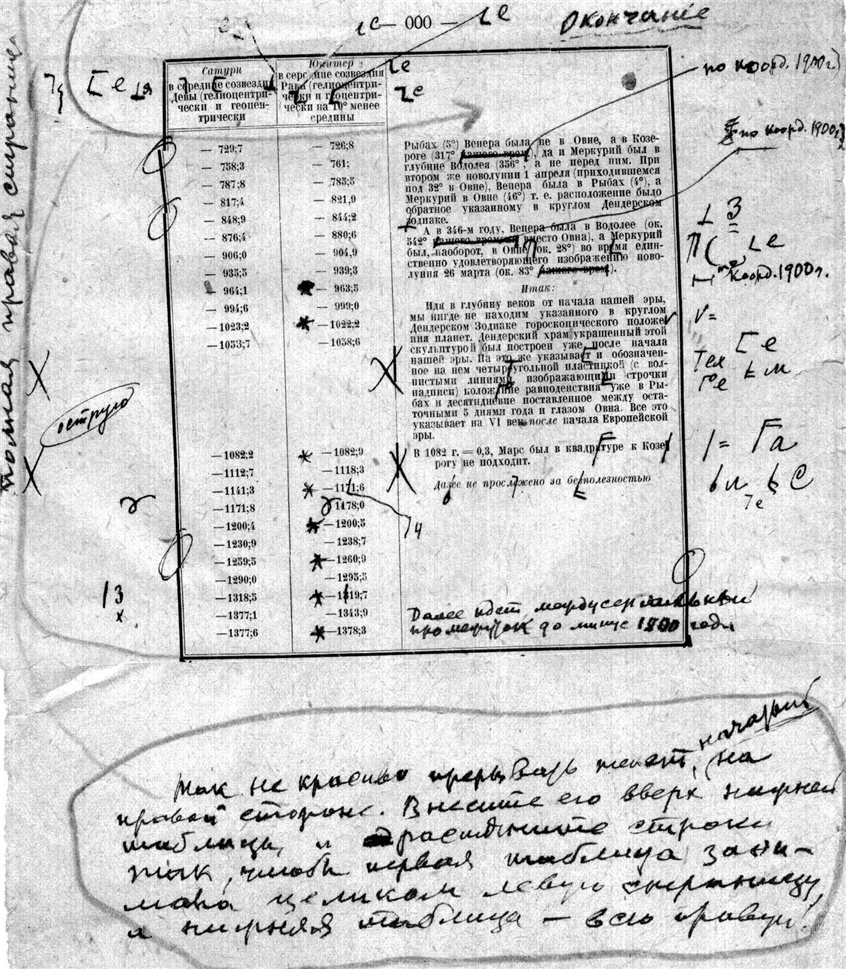 — 000 —
Окончание
Сатурн
в середине созвездия
Девы (гелиоцентри-
чески и геоцен-
трически
Юпитер
в середине созвездия
Рака (гелиоцентри-
чески и геоцентри-
чески на 10° менее
средины
по коорд. 1900 г.
по коорд. 1900 г.
коорд. 1900 г.
полная правая страница
острую
— 729,7 — 726,8
— 758,3 — 761,
— 787,8 — 785,5
— 817,4 — 821,9
— 848,9 — 844,2
— 876,4 — 880,6
— 906,0 — 904,9
— 935,5 — 939,3
— 964,1 — 963,5
— 994,6 — 999,0
—1023,2 —1022,2
—1053,7 —1058,6
—1082,2 —1082,9
—1112,7 —1118,3
—1141,3 —1171,6
—1171,8 —1178,0
—1200,4 —1200,5
—1230,9 —1238,7
—1259,5 —1260,9
—1290,0 —1295,5
—1318,5 —1319,7
—1377,1 —1343,9
—1377,6 —1378,3
Рыбах (5°) Венера была не в Овне, а в Козе-
роге (317° нашего врем), да и Меркурий был в
глубине Водолея (356°, а не перед ним. При
втором же новолунии 1 апреля (приходившемся
под 32° в Овне), Венера была в Рыбах (4°), а
Меркурий в Овне (46°) т. е. расположение было
обратное указанному в круглом Дендерском
зодиаке.
А в 346-м году, Венера была в Водолее (ок.
342° нашего времени вместо Овна), а Меркурий
был, наоборот, в Овне (ок. 28°) во время един-
ственно удовлетворяющего изображению ново-
луния 26 марта (ок. 83° нашего врем).
Итак:
Идя в глубину веков от начала нашей эры,
мы нигде не находим указанного в круглом
Дендерском Зодиаке гороскопического положе
ния планет. Дендерский храм украшенный этой
скульптурой был построен уже после начала
нашей эры. На это же указывает и обозначен-
ное на нем четыреугольной пластинкой (с вол-
нистыми линиями изображающими строчки
надписи) положение равноденствия уже в Ры-
бах и десятидневие поставленное между оста-
точными 5 днями года и глазом Овна. Все это
указывает на VI век после начала Европейской
эры.
В 1082 г. = 0,3, Марс был в квадратуре к Козе
рогу не подходит.
Далее не прослежено за бесполезностью
14
13
Далее идет
промежуток до минус 1900 года
Так не красиво прерывать текст, начатый на
правой стороне. Внесите его вверх нижней
таблицы, и раздвиньте строки
так, чтобы первая таблица зани-
мала целиком левую страницу,
а нижняя таблица — всю правую!